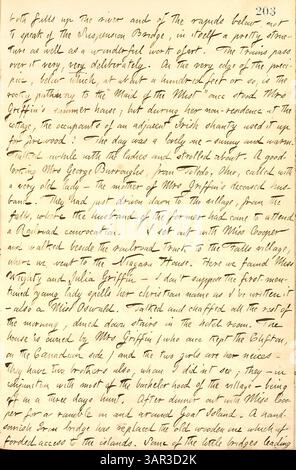 203
both falls up the river and of the rapids below not
to speak of the Suspension Bridge, in itself a pretty struc-
ture as well as a wonderful work of art. The trains pass
over it very, very deliberately. On the very edge of the preci-
pice, below which, at about a hundred feet or so, is the
rocky pathway to the Maid of the Mist" once stood Mrs
Griffin's summer house; but during her non-residence at the
cottage, the occupants of an adjacent Irish shanty used it up
for firewood! The day was a lovely one — sunny and warm.
Talked awhile with the ladies and strolled about. A good
looking Mrs George Burroughs, from Toledo, Ohio, called with
a very old lady — the mother of Mrs Griffin's deceased hus-
band. They had just driven down to the village, from the
Falls, where the husband of the former had come to attend
a Railroad convocation. I set out with Miss Cooper
and walked beside the railroad track to the Falls village,
where we went to the Niagara House. Here we found Miss
and Julia Griffin — I don't suppose the first-men-
tioned young lady spells her christian name as I've written it
— also a Miss Oswald. Talked and chaffed all the rest of
the morning, dined down stairs in the hotel room. The
house is owned by Mrs Griffin (who once kept the Clifton,
on the Canadian side) and the two girls are her nieces.
They have two brothers also, whom I did n't see; they — in
conjunction with most of the bachelorhood of the village — being
off on a three days hunt. After dinner out with Miss Coo-
per for a ramble in and around Goat Island. A hand-
some Iron bridge has replaced the old wooden one which af-
forded access to the islands. Some of the little bridges leading